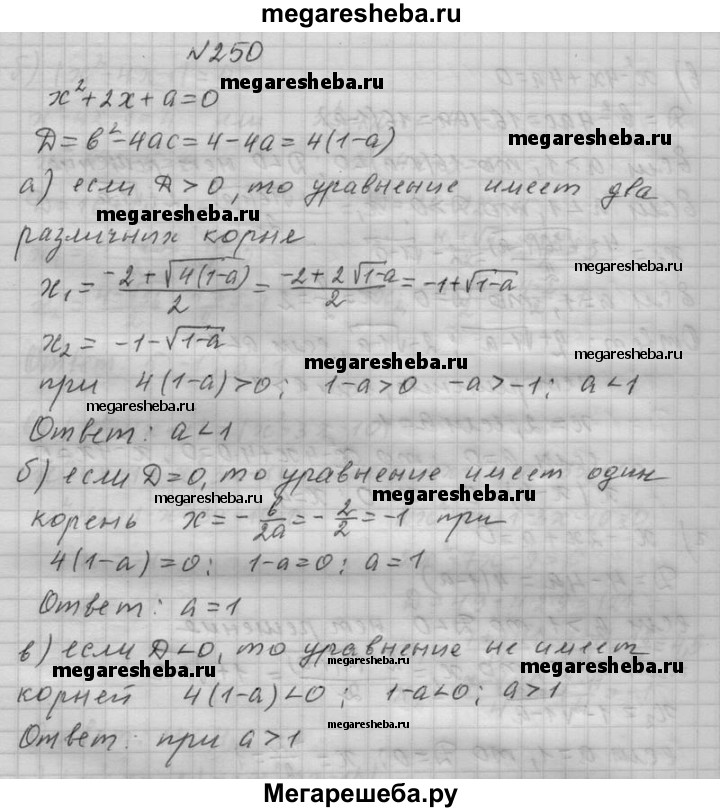 megaresheba.ru
№250
megaresheba.ru
x²+2x+a=0
Д=в²-4ac=4-4a=4(1-a)
megaresheba.ru
а) если Д>0, то уравнение имеет два
megaresheba.ru
различных корня
megaresheba.ru
x₁=(-2+√4(1-a))/2=(-2+2√1-a)/2=-1+√1-a
x₂=-1-√1-a
megaresheba.ru
megaresheba.ru
при 4(1-a)>0; 1-a>0 -a>-1; a<1
megaresheba.ru
Ответ: a<1
б) если Д=0, то уравнение имеет один
megaresheba.ru
megaresheba.ru
корень x=-в/2a=-2/2=-1 при
4(1-a)=0; 1-a=0; a=1
Ответ: a=1
в) если Д<0, то уравнение не имеет
megaresheba.ru
megaresheba.ru
megaresheba.ru
корней 4(1-a)<0; 1-a<0; a>1
megaresheba.ru
Ответ: при a>1
Мегарешеба.ру